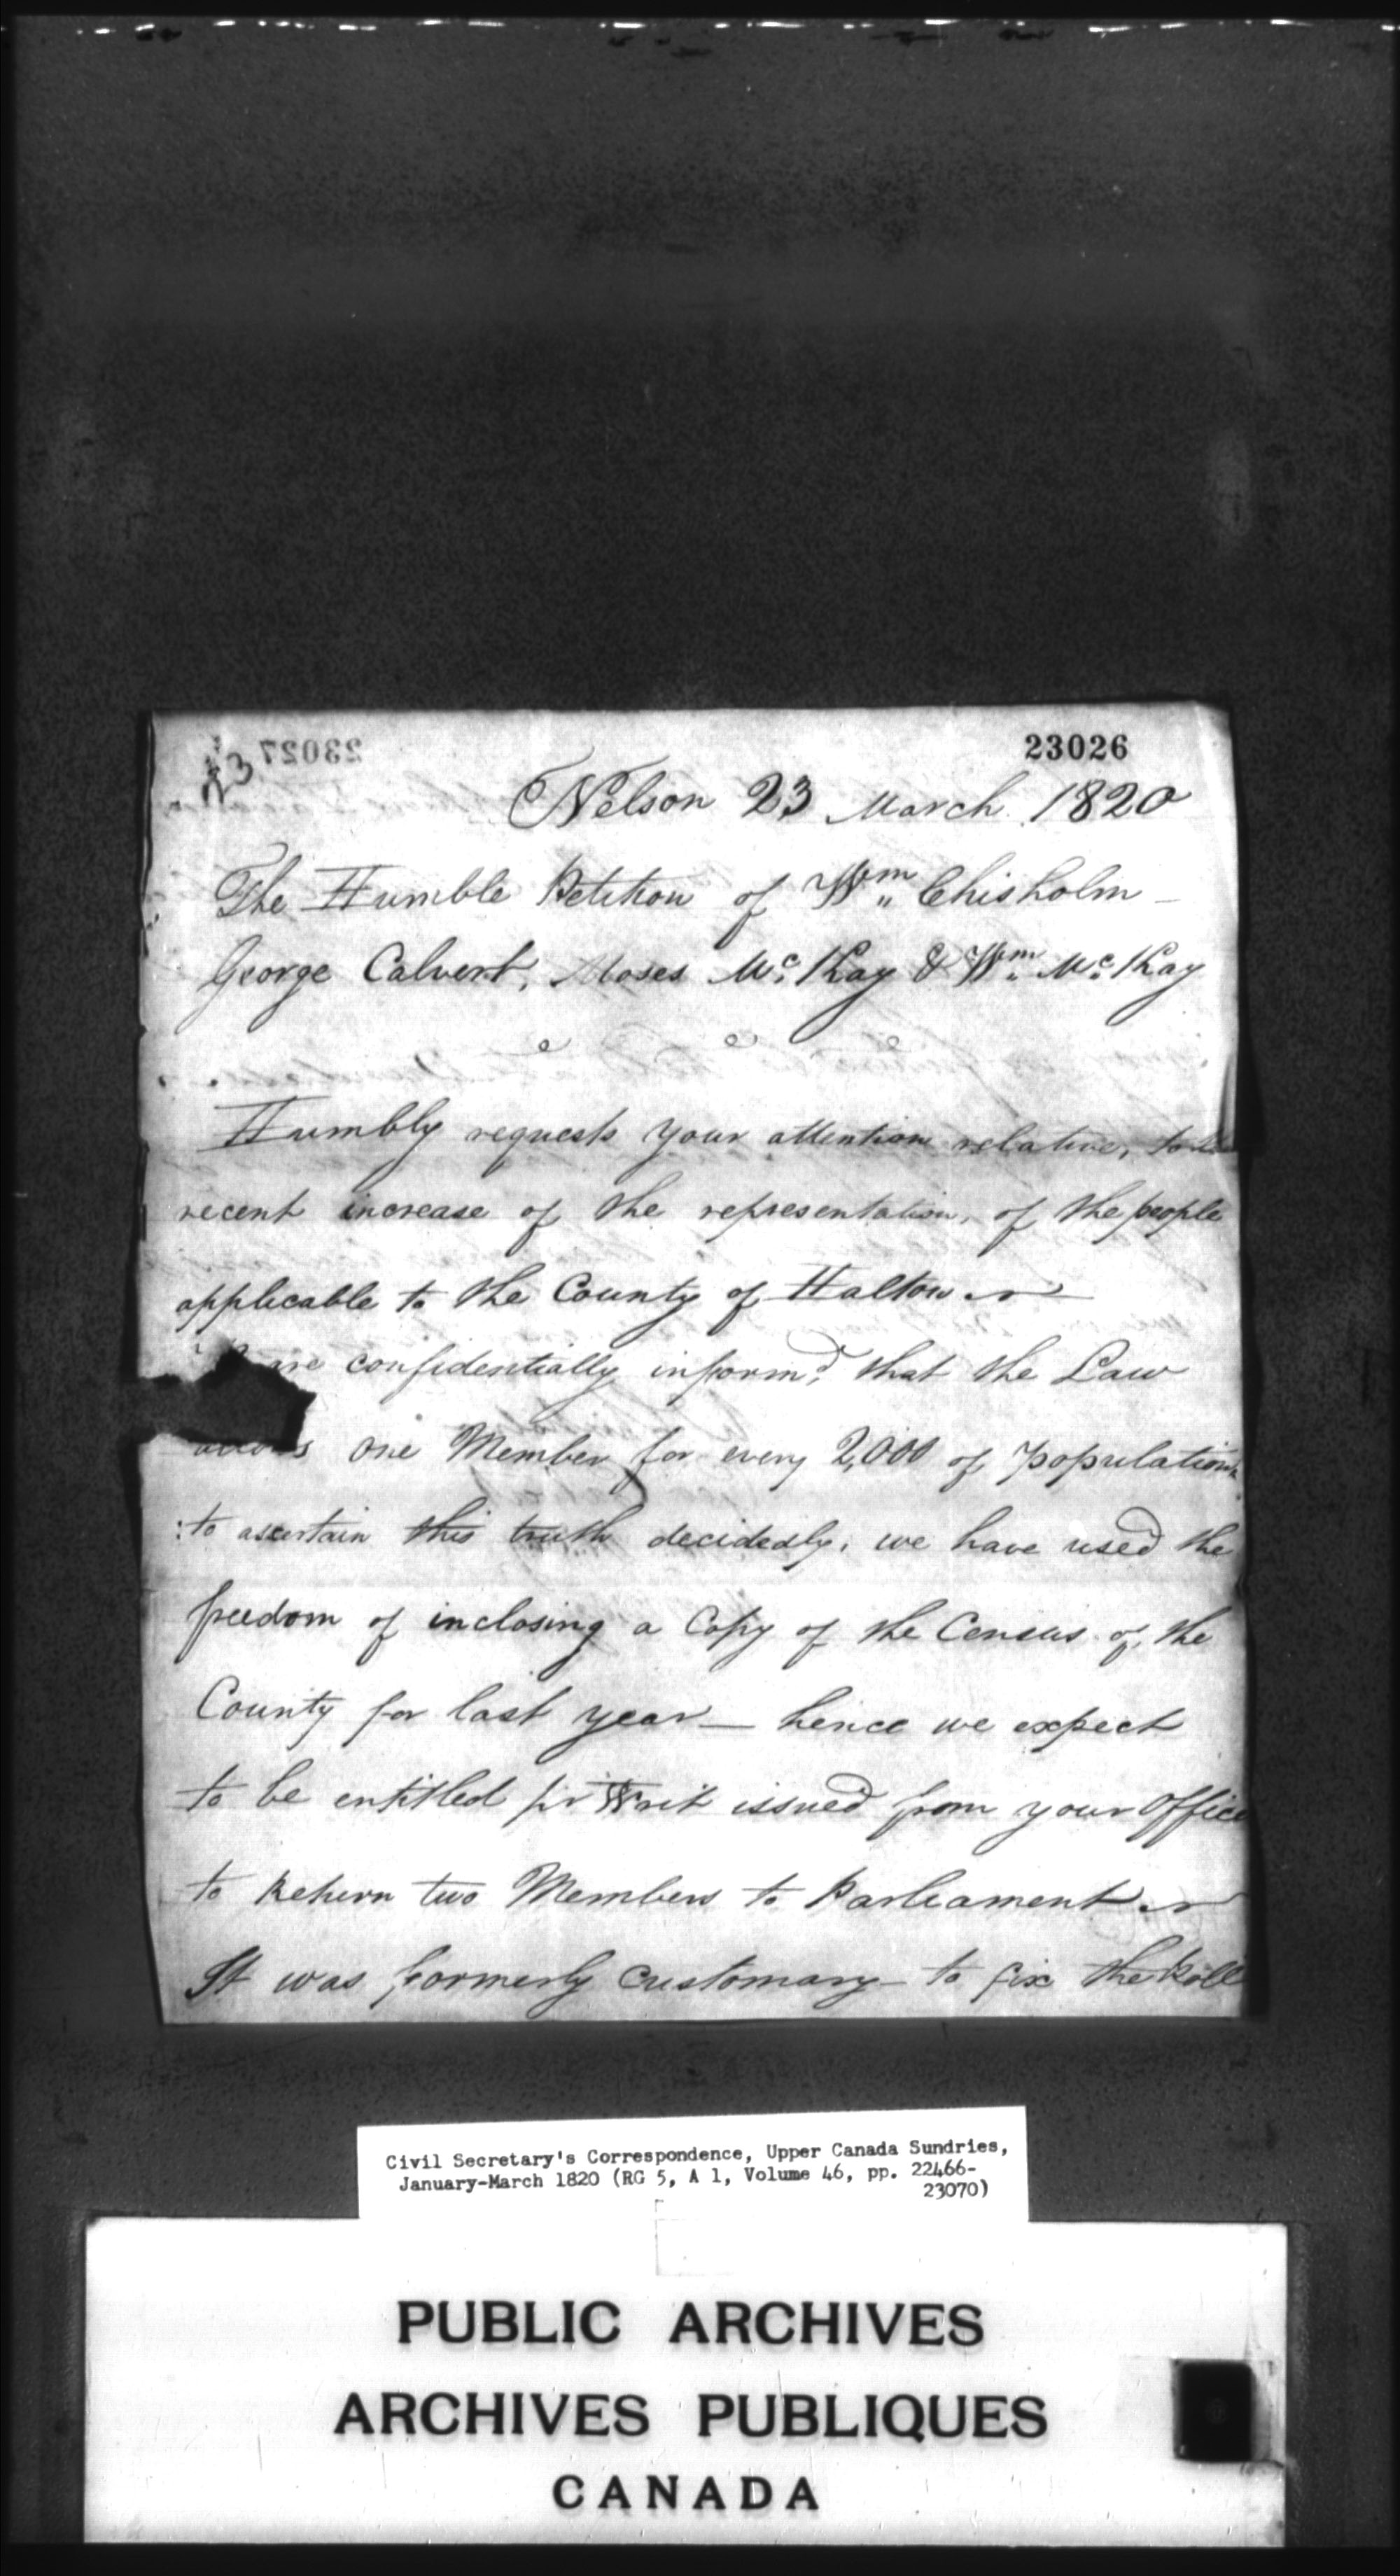 23026
23027
23
Nelson 23 March 1820
The Humble Petition of Wm. Chisholm
George Calvert, Moses Mc. Kay & Wm. Mc. Kay
Humbly requests your attention relative, to the
recent increase of the representation, of the people
applicable to the County of Halton
are confidentially inform'd that the Law
allows one Member for every 2,000 of population
to ascertain this truth decidedly, we have used the
freedom of inclosing a Copy of the Census of the
County for last year — hence we expect
to be entitled pr Writ issued from your Office
to Return two Members to Parliament
It was formerly customary to fix the Poll
Civil Secretary's Correspondence, Upper Canada Sundries,
January-March 1820 (RG 5, A 1, Volume 46, pp. 22466-
23070)
PUBLIC ARCHIVES
ARCHIVES PUBLIQUES
CANADA